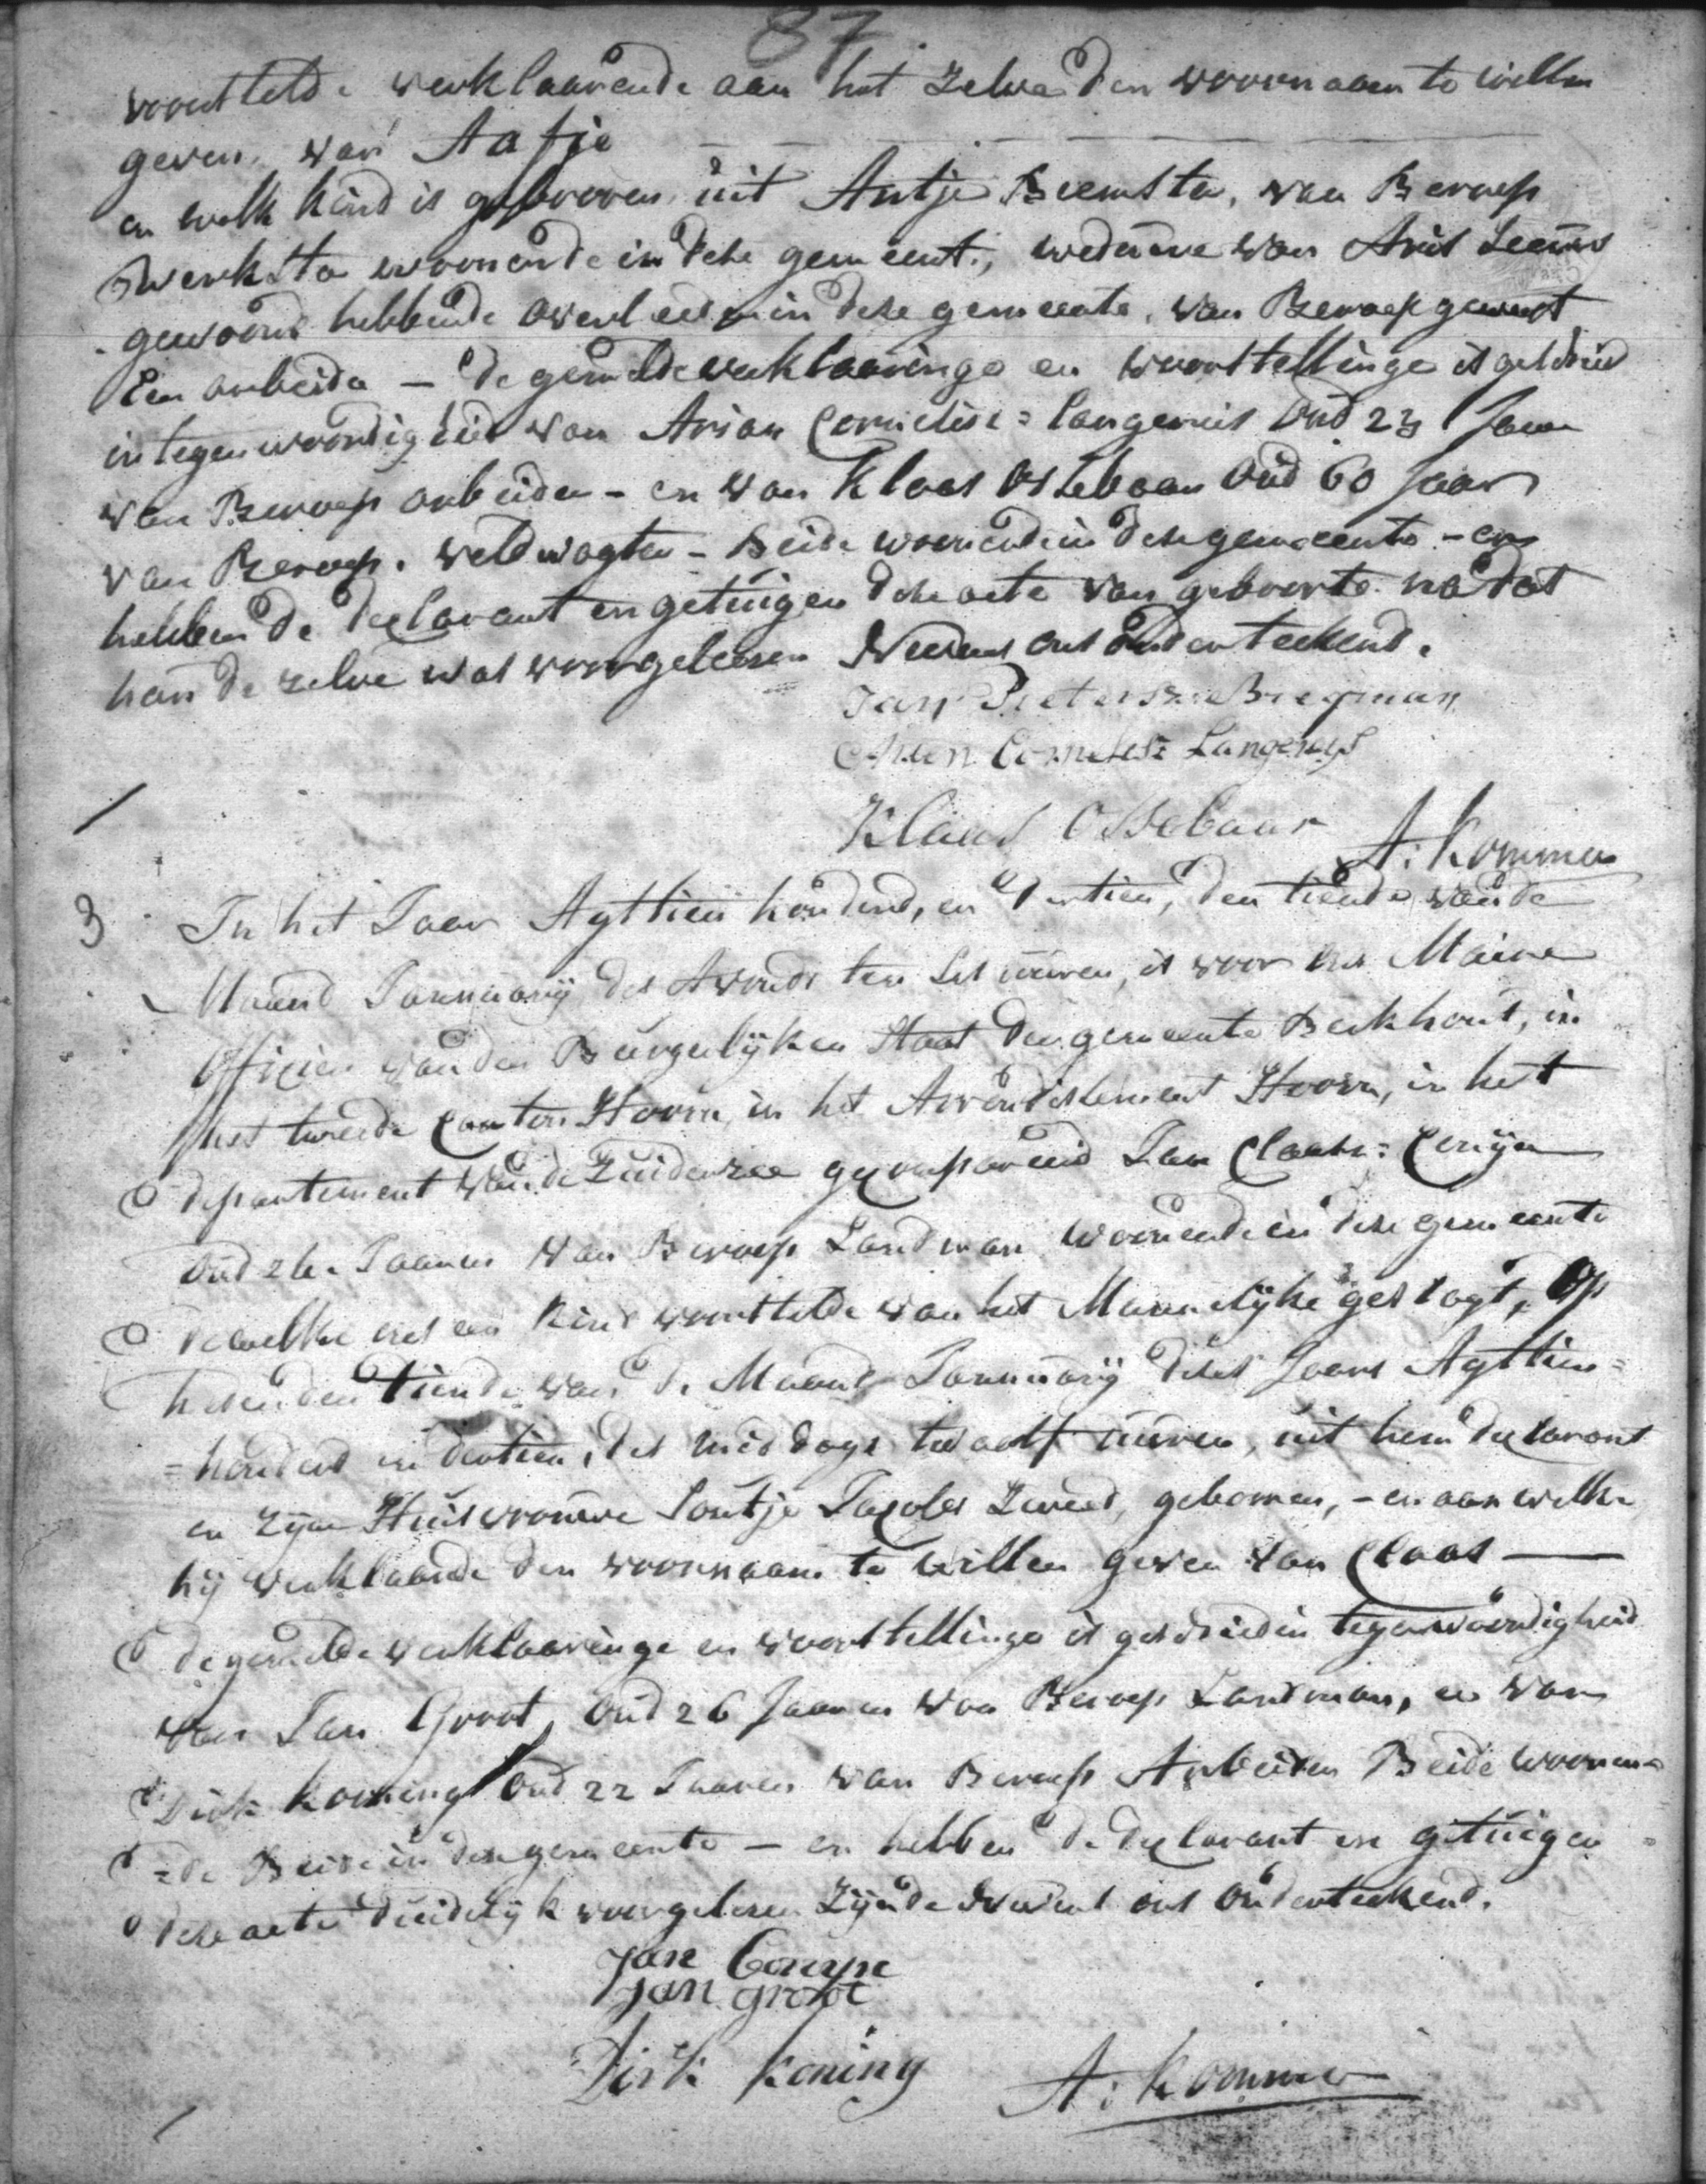 87
voorstelde verklaarende aan het zelve den voornaam te willen
geven van Aafje
en welk kind is gebooren uit Antje Beemster, van Beroep
werkster woonende in deze gemeente, weduwe van Aris Leeuw
gewoond hebbende overleeden in deze gemeente, van Beroep geweest
Een arbeider – de gemelde verklaaringe en voorstellinge is geschied
in tegenwoordigheid van Arian Cornelisz= Langereis oud 23 Jaar
van Beroep arbeider – en van Klaas Ossebaar oud 60 Jaar
van Beroep. veldwagter – Beide woonende in deze gemeente – en
hebben de declarant en getuigen deze acte van geboorte na dat
han de zelve was voorgeleesen Nevens ons onderteekend.
Jan Pietersz Bregman
Arien Cornelisz: Langereijs
Klaas Ossebaar A: Kommer
3 In het Jaar Agttien honderd, en dertien, den tiende van de
Maand Januuarij des Avonds ten ses uuren, is voor ons Maire
Officier van den Burgerlijken Staat der gemeente Berkhout, in
het tweede Canton Hoorn, in het Arrondissement Hoorn, in het
departement van de Zuiderzee gecompareerd Jan Claasz=
oud 26 Jaaren van Beroep Landman woonende in deze gemeente
dewelke ons een kind voorstelde van het Mannelijke geslagt, Op
heeden den tiende van de Maand Januuarij dezes Jaars Agttien=
=honderd en dertien, des middags twaalf uuren, uit hem declarant
en zijne Huisvrouwe Jacobs, gebooren, – en aan welke
hij verklaarde den voornaam te willen geven van Claas —
de gemelde verklaaringe en voorstellinge is geschied in tegenwoordigheid
van Jan Groot, oud 26 Jaaren van Beroep Landman, en van
Dirk Koning oud 22 Jaaren van Beroep Arbeider Beide woonen=
=de Beide in deze gemeente – en hebben de declarant en getuigen
deze acte duidelijk voorgelesen zijnde Nevens ons onderteekend.
Jan
Jan groot
Dirk Koning A: Kommer